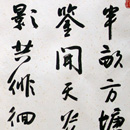 半畝方塘
鑒開天光
影共徘徊